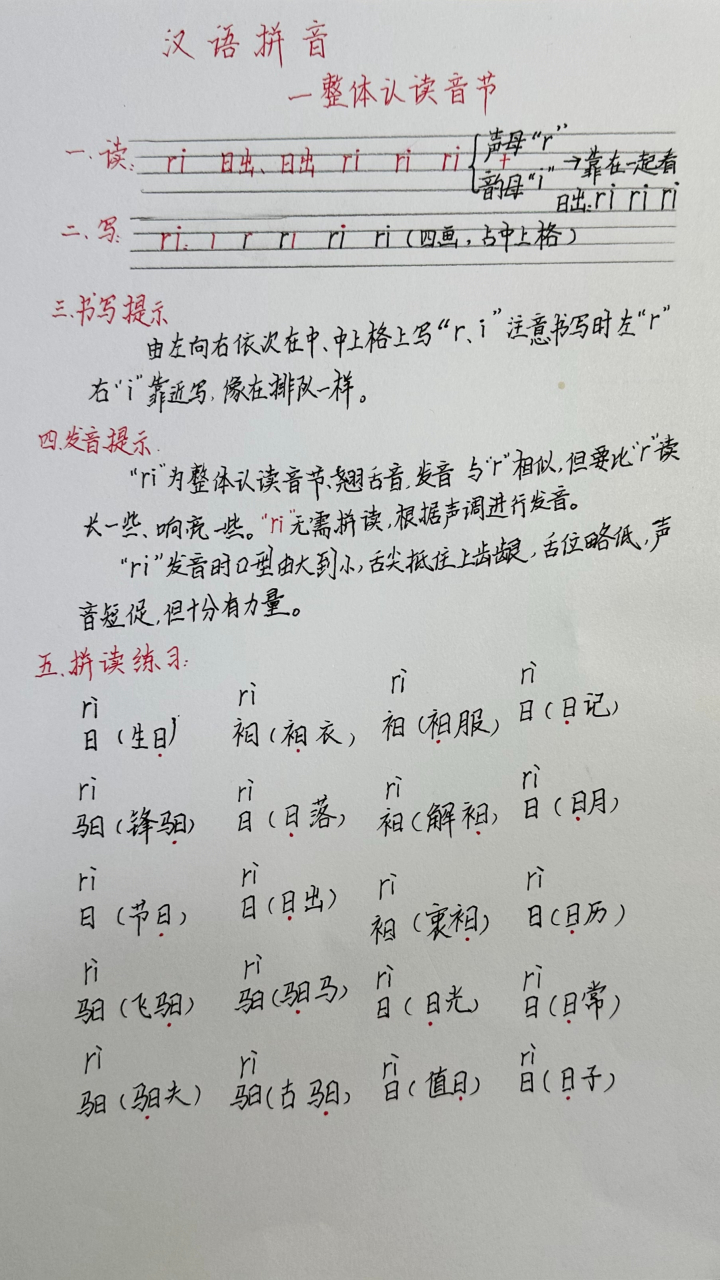 汉语拼音
一整体认读音节
一.读: ri 日出、日出 ri ri ri { 声母“r” + 韵母“i” →靠在一起看
日出:ri ri ri
二、写: ri: ı r rı ri ri(四画,占中上格)
三.书写提示
由左向右依次在中、中上格上写“r、i”注意书写时左“r”
右“i”靠近写,像在排队一样。
四.发音提示.
“ri”为整体认读音节、翘舌音,发音与“r”相似,但要比“r”读
长一些、响亮一些。“ri”无需拼读,根据声调进行发音。
“ri”发音时口型由大到小,舌尖抵住上齿龈,舌位略低,声
音短促,但十分有力量。
五.拼读练习:
rì rì rì rì
日(生日) 衵(衵衣) 衵(衵服) 日(日记)
rì rì rì rì
馹(锋馹) 日(日落) 衵(解衵) 日(日月)
rì rì rì rì
日(节日) 日(日出) 衵(裹衵) 日(日历)
rì rì rì rì
驲(飞驲) 驲(驲马) 日(日光) 日(日常)
rì rì rì rì
驲(驲夫) 驲(古驲) 日(值日) 日(日子)